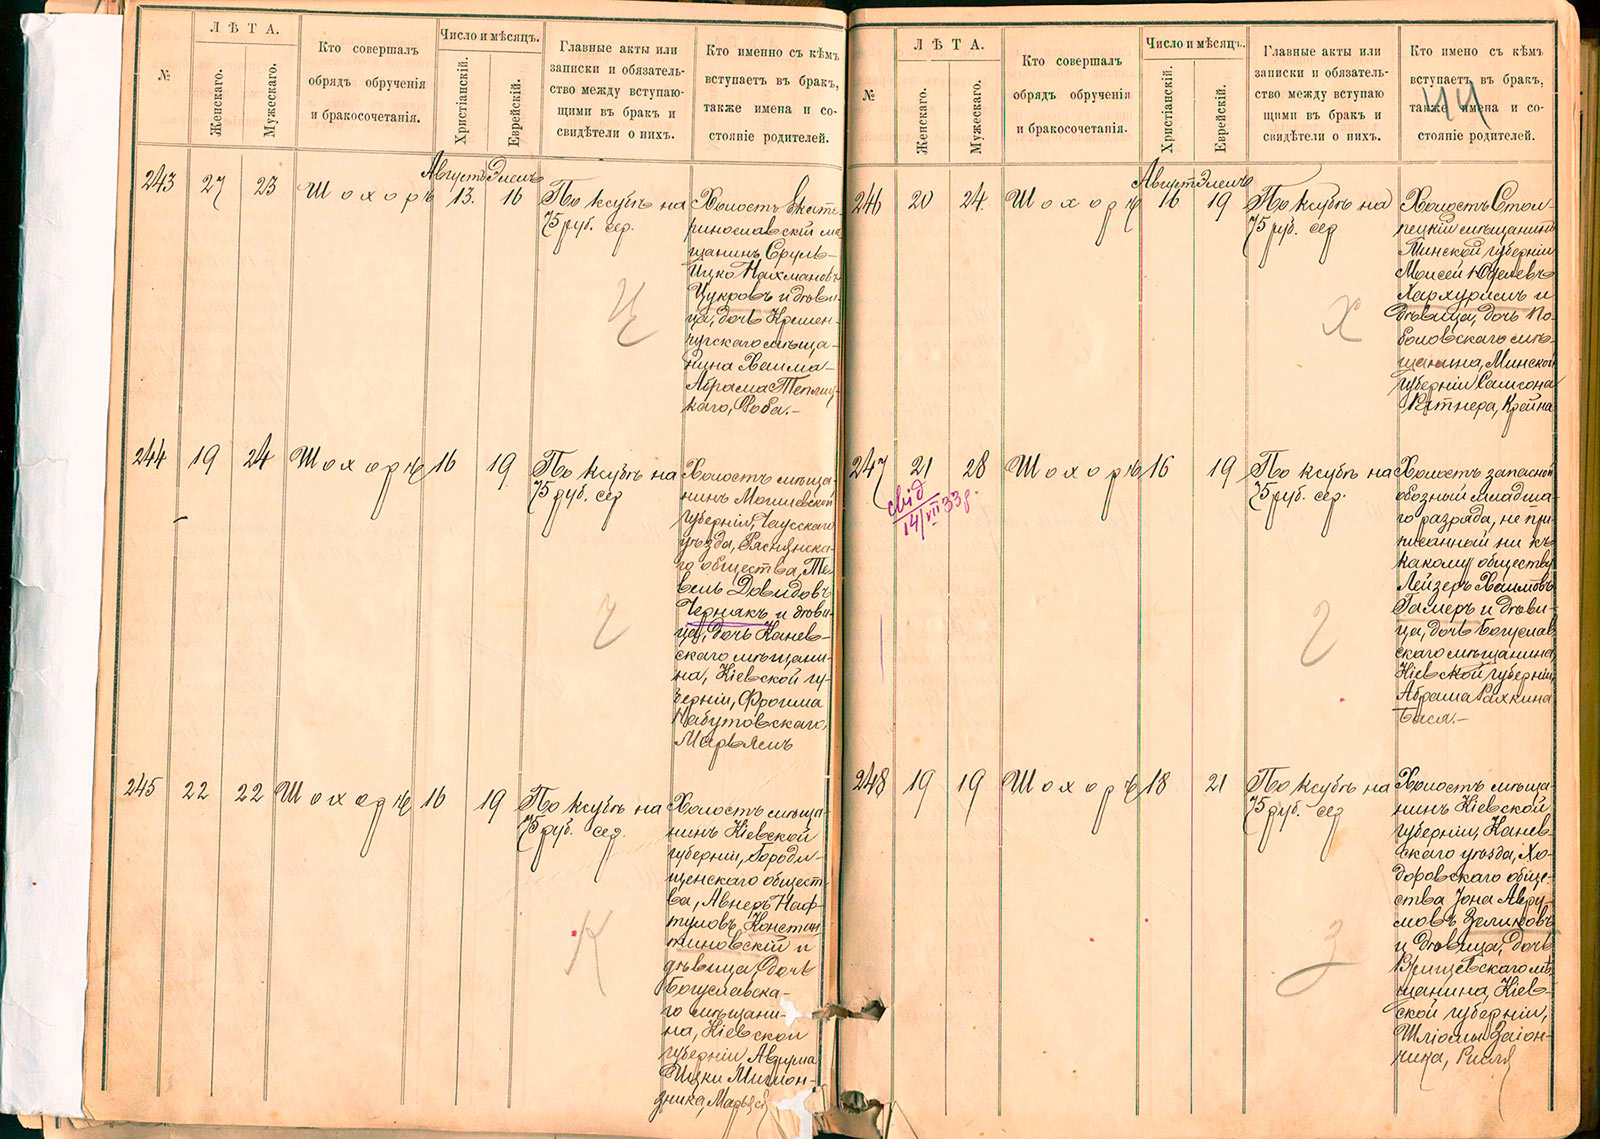 №
ЛѢТА.
Женскаго.
Мужескаго.
Кто совершалъ
обрядъ обрученія
и бракосочетанія.
Число и мѣсяцъ.
Христіанскій.
Еврейскій.
Главные акты или
записки и обязатель-
ство между вступаю-
щими въ бракъ и
свидѣтели о нихъ.
Кто именно съ кѣмъ
вступаетъ въ бракъ,
также имена и со-
стояніе родителей.
243
27
23
Шохоръ
Августъ
13.
Элемъ
16
По ксубѣ на
75 руб. сер.
Холостъ Екате-
ринославскій мѣ
щанинъ Сруль-
Ицко Нахмановъ
Цукровъ и дѣви-
ца, дочь Кремен-
чугскаго мѣща-
нина Хаима-
Абрама Теплиц-
каго, Фоба.-
Ц
244
19
24
Шохоръ
16
19
По ксубѣ на
75 руб. сер
Холостъ мѣща-
нинъ Могилевской
губерніи, Чаусскаго
уѣзда, Ряснянска-
го общества, Те-
вель Довидовъ
Чернякъ и дѣви-
ца, дочь Канев-
скаго мѣщани-
на, Кіевской гу-
берніи, Фроима
Набутовскаго,
Марьясъ
Ч
245
22
22
Шохоръ
16
19
По ксубѣ на
75 руб. сер.
Холостъ мѣща-
нинъ Кіевской
губерніи, Городи-
щенскаго общест
ва, Авнеръ Наф-
туловъ Констан
тиновскій и
дѣвица, дочь
Богуславска-
го мѣщани-
на, Кіевской
губерніи Аврума
Ицки
К
№
ЛѢТА.
Женскаго.
Мужескаго.
Кто совершалъ
обрядъ обрученія
и бракосочетанія.
Число и мѣсяцъ.
Христіанскій.
Еврейскій.
Главные акты или
записки и обязатель-
ство между вступаю
щими въ бракъ и
свидѣтели о нихъ.
Кто имено съ кѣмъ
вступаетъ въ бракъ,
также имена и со-
стояніе родителей.
44
246
20
24
Шохоръ
Августъ
16
Элемъ
19
По ксубѣ на
75 руб. сер
Холостъ Стол-
пецкій мѣщанинъ
Минской губерніи
Моисей Юделевъ
Хархуримъ и
дѣвица, дочь По-
боловскаго мѣ-
щанина, Минской
губерніи Самсона
Ратнера, Крейна
Х
247
21
28
свід
14/VII 33р.
Шохоръ
16
19
По ксубѣ на
75 руб. сер.
Холостъ запасной
обозный младша-
го разряда, не при-
писанный ни къ
какому обществу
Лейзеръ Хаимовъ
Гамеръ и дѣви-
ца, дочь Богуслав
скаго мѣщанина
Кіевской губерніи,
Абрама Рахкина
Бася.-
Г
248
19
19
Шохоръ
18
21
По ксубѣ на
75 руб. сер
Холостъ мѣща-
нинъ Кіевской
губерніи, Канев-
скаго уѣзда, Хо-
доровскаго обще-
ства Іона Авру-
мовъ Зеликовъ
и дѣвица, дочь
Ржищевскаго мѣ
щанина, Кіев-
ской губерніи,
Шліомы Заіон-
чика, Рисля
З